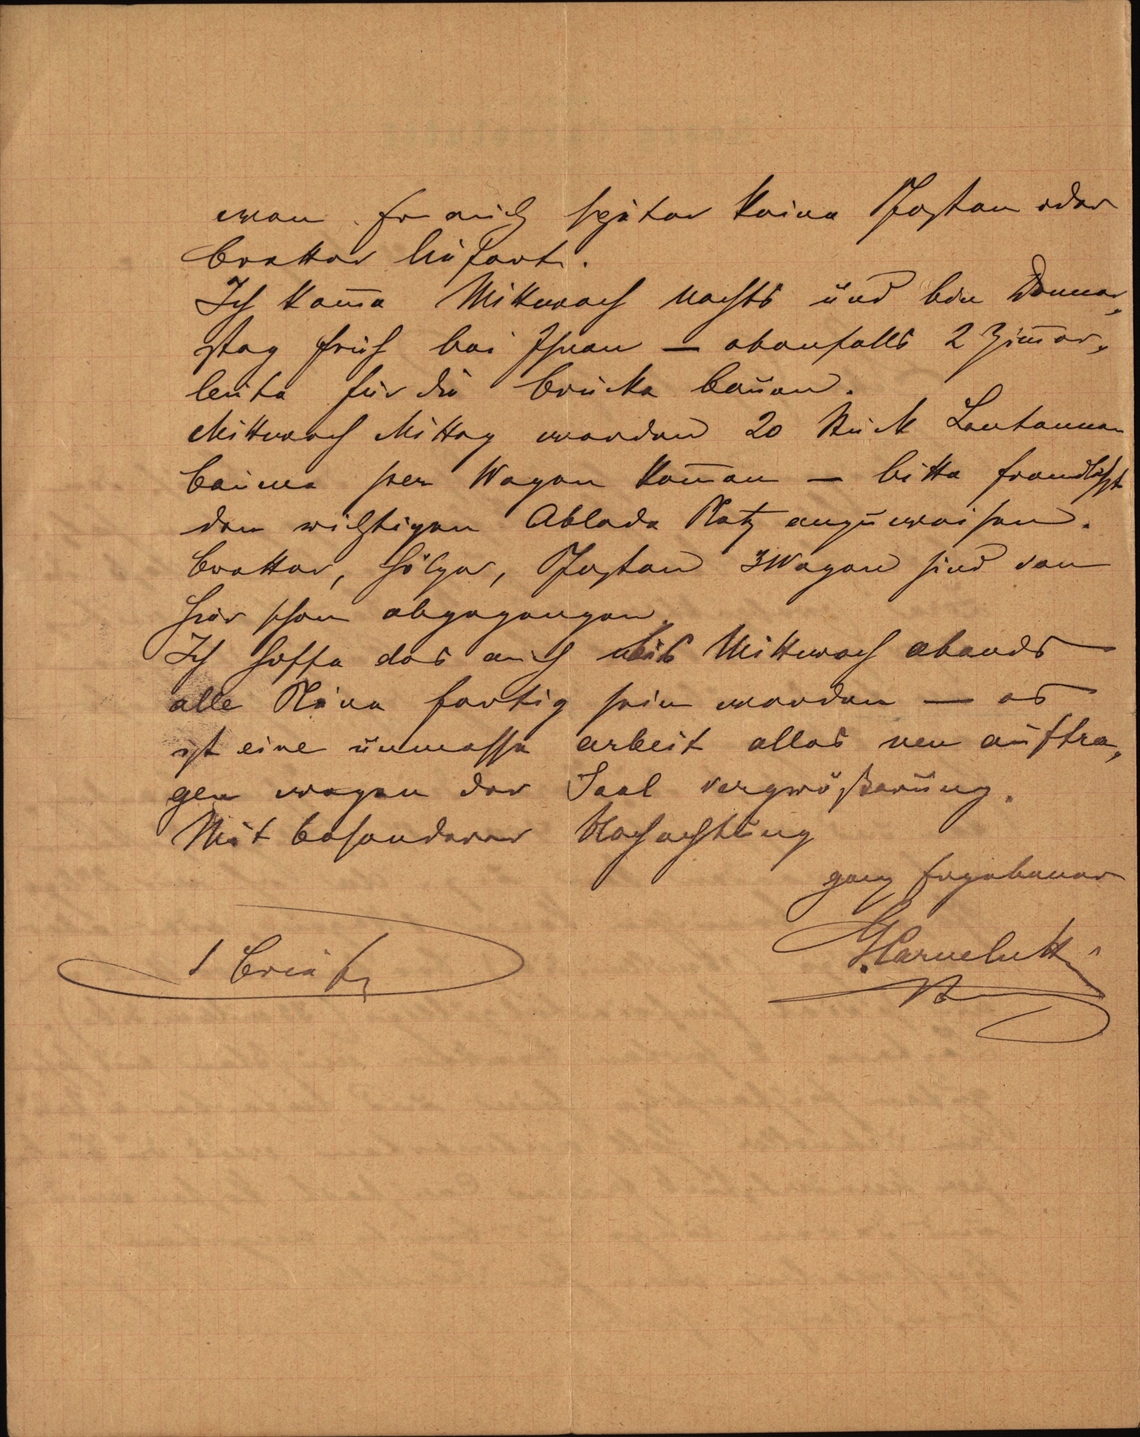 wenn Er auch später keine Pfosten oder
bretter liefert.
Ich kom̅e Mittwoch Nachts und bin Donner,
stag früh bei Ihnen — ebenfalls 2 Zim̅er,
leute für die brücke bauen.
Mittwoch Mittag werden 20 Stück Lanternen
bäume per Wagen kom̅en — bitte freundlichst
den richtigen Ablade Platz anzuweisen.
bretter, hölzer, Pfosten 3 Wagen sind von
hier schon abgegangen.
Ich hoffe das auch bis Mittwoch abends
alle Pläne fertig sein werden — es
ist eine unmasse arbeit alles neu auftra,
gen wegen der Saal vergrößerung.
Mit besonderer Hochachtung
ganz Ergebener
1 brief